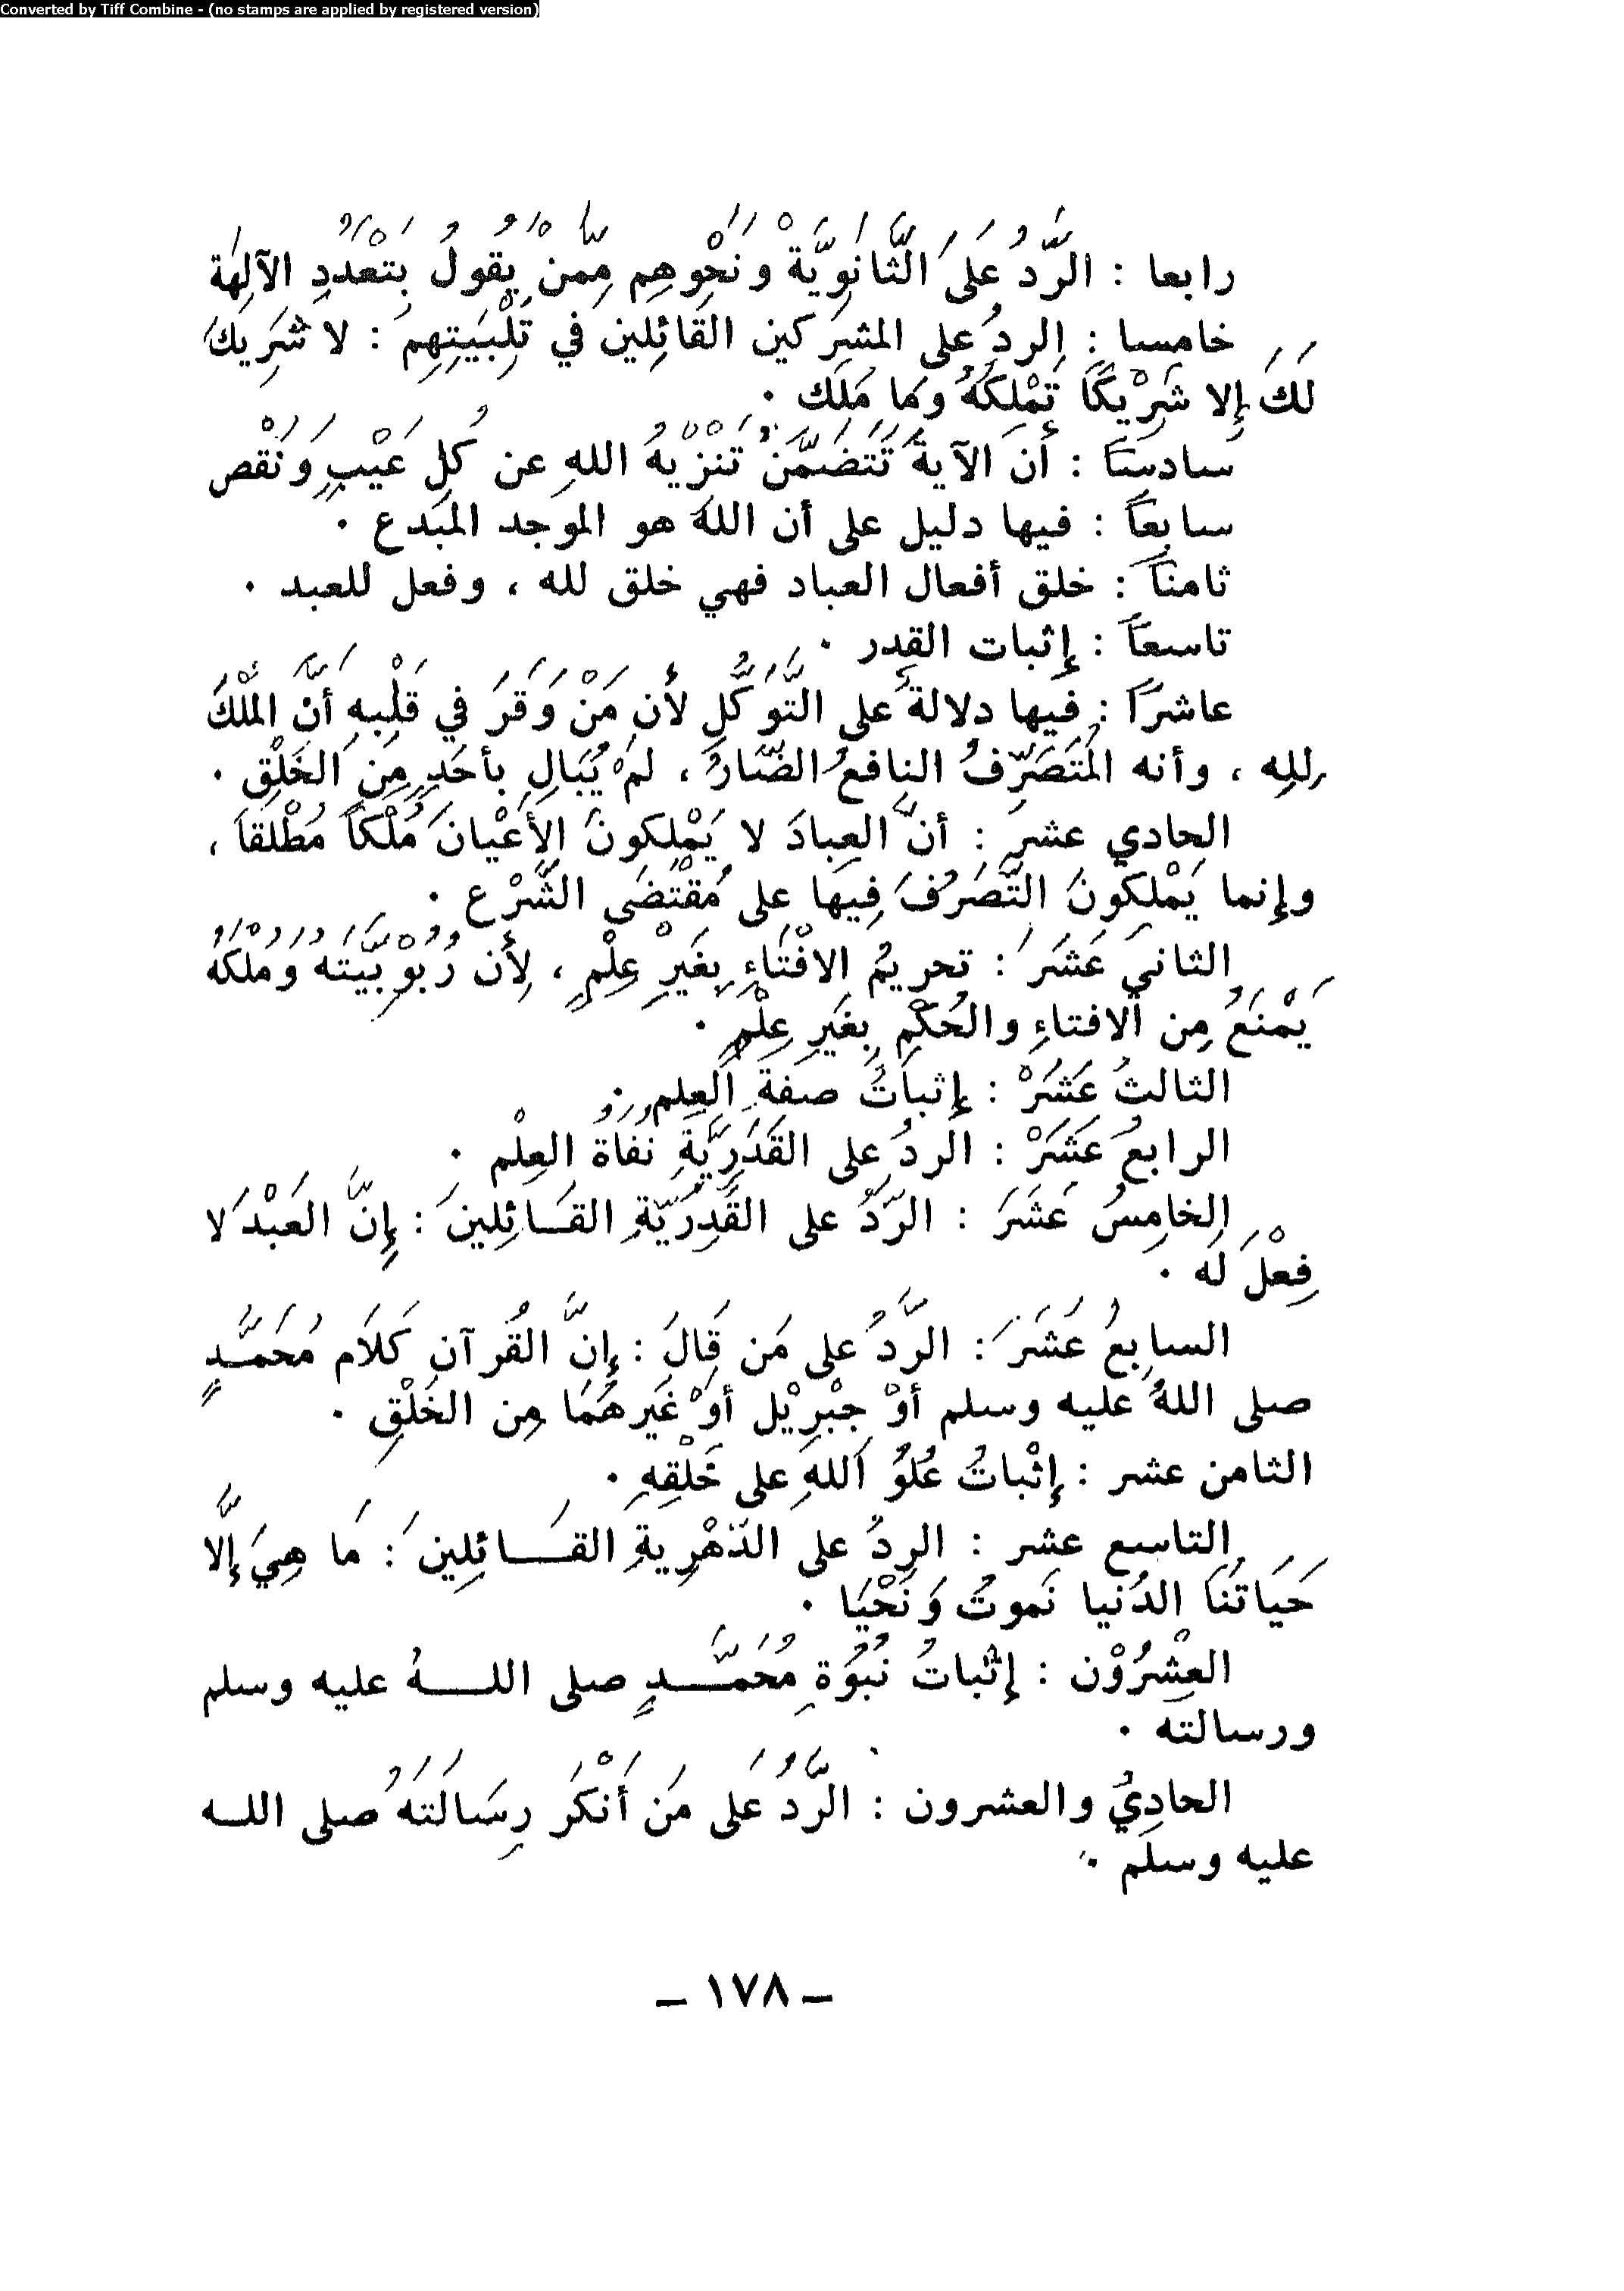 Converted by Tiff Combine - (no stamps are applied by registered version)
رابعا : الرَّدُّ عَلَى الثَّانَوِيَّةْ وَنَحْوِهِم مِمَّنْ يَقُولُ بِتَعَدُدِ الآلِهَة
خامسا : الردُ على المشرَكين القَائِلين في تَلْبِيَتِهِمْ : لا شَرِيكَ
لَكَ إلا شَرِيْكًا تَمْلِكَهُ وَمَا مَلَك .
سادسًا : أَنَ الآيةَ تَتَضَمَّنُ تَنْزِيْهُ اللهِ عن كُلِ عَيْبٍ وَنَقْص
سابعاً : فيها دليل على أن اللهَ هو الموجد المبَدع .
ثامناً : خلق أفعال العباد فهي خلق لله ، وفعل للعبد .
تاسعاً : إثبات القدر .
عاشرًا : فيها دلالةٌ على التَّوَكُّلِ لأن مَنْ وَقَرَ في قَلْبِهِ أَنَّ المُلْكَ
لِلهِ ، وأنه المُتَصَرِّفُ النافعُ الضَّارُ ، لمْ يُبَالِ بأحَدٍ مِنَ الخَلْقِ .
الحادي عشر : أنَّ العِبادَ لا يَمْلِكونَ الأَعْيانَ مُلْكاً مُطْلَقاً ،
وإنما يَمْلِكونَ التَّصَرُفَ فِيهَا على مُقْتَضَى الشَّرْع .
الثاني عَشَرَ : تحريمُ الافْتَاءِ بِغَيْرِ عِلْمٍ ، لِأَن رُبُوْبِيَّتَهُ وَمُلْكَهُ
يَمْنَعُ مِن الافتاءِ والحُكْمِ بِغَيرِ عِلْمٍ .
الثالثُ عَشَرْ : إثباتُ صفةِ العِلم .
الرابعُ عَشَرْ : الردُ على القَدَرِيَّةِ نُفَاةُ العِلْم .
الخامِسُ عَشَرَ : الرَّدُّ على القَدَرِيَّةِ القَـائِلِينَ : إنَّ العَبْدَ لا
فِعْلَ لَه .
السابِعُ عَشَرَ : الرَّدُ على مَن قَالَ : إنَّ القُرآنَ كَلَام مُحَمَّـدٍ
صلى اللهُ عليه وسلم أوْ جِبْرِيْل أوْ غَيرهُمَا مِن الخَلْقِ .
الثامن عشر : إثْباتُ عُلُوُ اللهِ على خَلْقِهِ .
التاسع عشر : الردُ على الدَهْرِيةِ القَـــائِلِينَ : مَا هِيَ إلَّا
حَيَاتُنَا الدُنيا نَموتُ وَنَحْيَا .
العِشرُوْن : إثْباتُ نُبُوَةِ مُحَمَّـــدٍ صلى اللـــهُ عليه وسلم
ورسالته .
الحادِيُ والعشرون : الرَّدُ عَلَى مَن أَنْكَرَ رِسَالَتَهُ صلى اللـه
عليه وسلم .
ـ ١٧٨ ـ